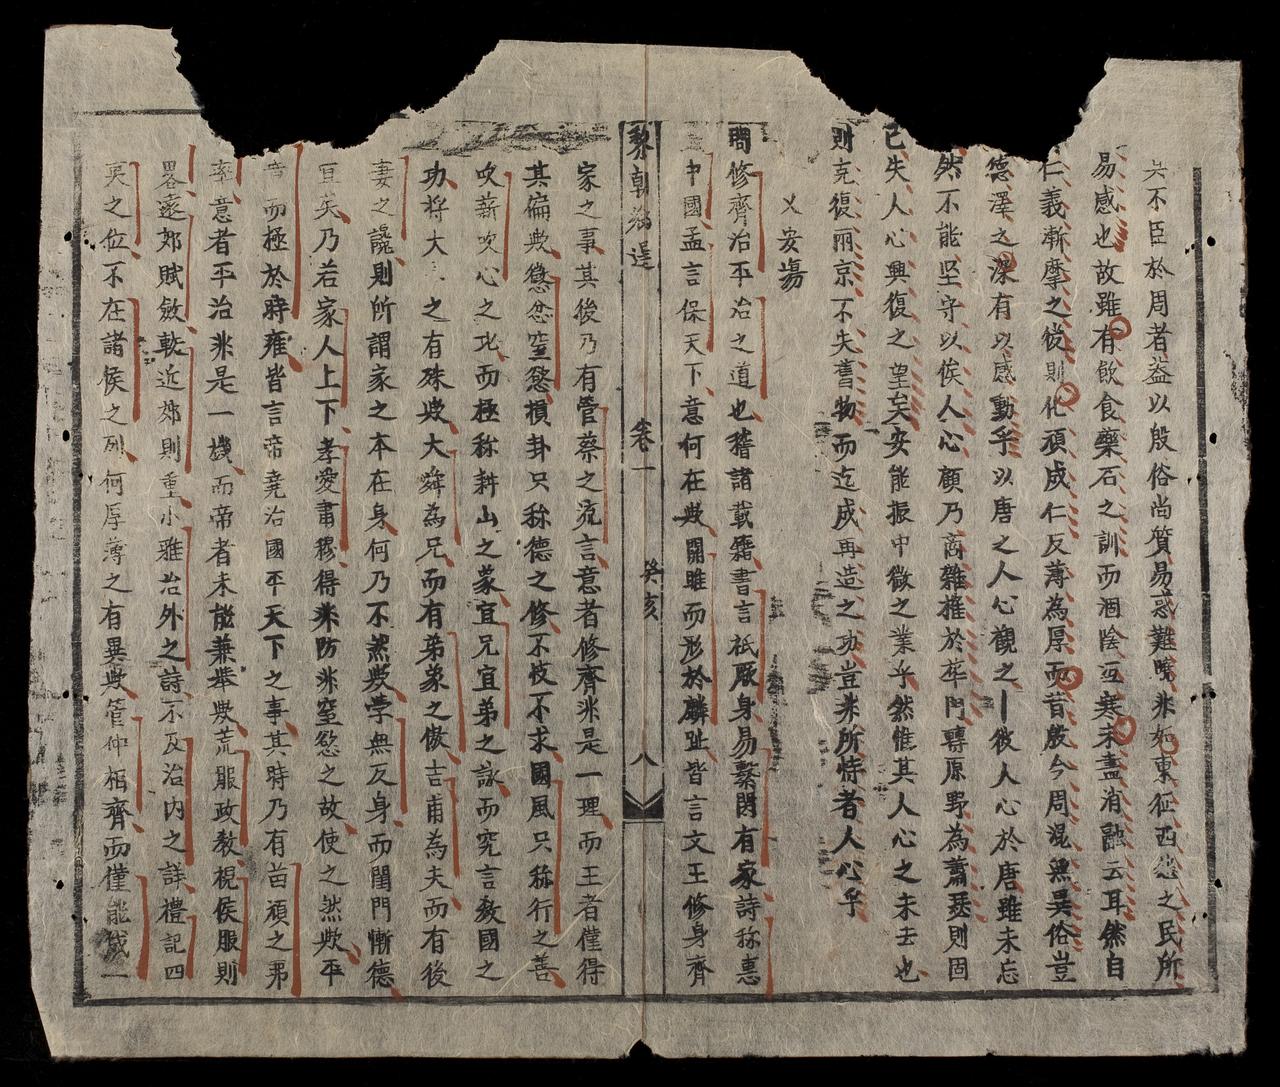 不臣於周者蓋以殷俗尚質易惑難曉非如東征西怨之民所
易感也故雖有飲食藥石之訓而涸陰沍寒未盡消融云耳然自
仁義漸摩之後則化頑成仁反薄為厚而昔殷今周混無異俗豈
德澤之深有以感動乎以唐之人心觀之彼人心於唐雖未忘
然不能坚守以俟人心顧乃離於門轉原野為蕭瑟則固
已失人心興復之望矣安能振中微之業乎然惟其人心之未去也
則克復兩京不失舊物而迄成再造之功豈非所恃者人心乎
乂安塲
問修齊治平治之道也稽諸載籍書言祇厥身易繫閑有家詩称惠
中國孟言保天下意何在歟關雎而形於麟趾皆言文王修身齊
黎朝
卷一
癸亥
八
家之事其後乃有管蔡之流言意者修齊非是一理而王者僅得
其偏歟懲忿窒慾損卦只称德之修不忮不求國風只称行之善
吹薪吹心之北而極称耕山之蒙宜兄宜弟之詠而究言教國之
功将大之有殊歟大舜為兄而有弟象之傲吉甫為夫而有後
妻之讒則所謂家之本在身何乃不然歟學無反身而閨門慚德
宜矣乃若家人上下孝愛肅穆得非防非窒慾之故使之然歟平
章而極於時雍皆言帝堯治國平天下之事其時乃有苗頑之弗
率意者平治非是一機而帝者未能兼舉歟荒服政教視侯服則
畧遠郊賦斂較近郊則重小雅治外之詩不及治内之詳禮記四
夷之位不在諸侯之列何厚薄之有異歟管仲相齊而僅能一